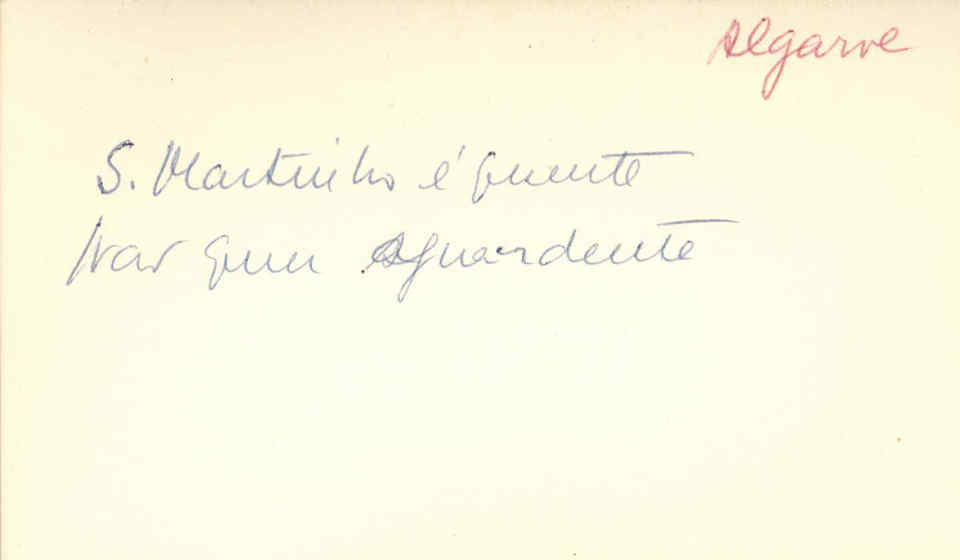 Algarve
S. Martinho é quente
Nas quer Aguardente